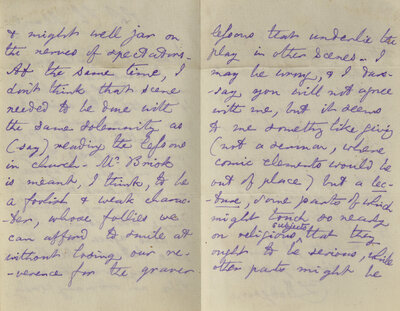 & might well jar on
the nerves of spectators.
At the same time, I
don't think that scene
needed to be done with
the same solemnity as
(say) reading the lessons
in church. Mr. Brisk
is meant, I think, to be
a foolish & weak charac-
-ter, whose follies we
can afford to smile at
without losing our re-
-verence for the graver
lessons that underlie the
play in other scenes. I
may be wrong, & I dare-
say you will not agree
with me, but it seems
to me something like giving
(not a sermon, where
comic elements would be
out of place) but a lec-
-ture, some parts of which
might touch so nearly
on religious subjects that they
ought to be serious, while
other parts might be